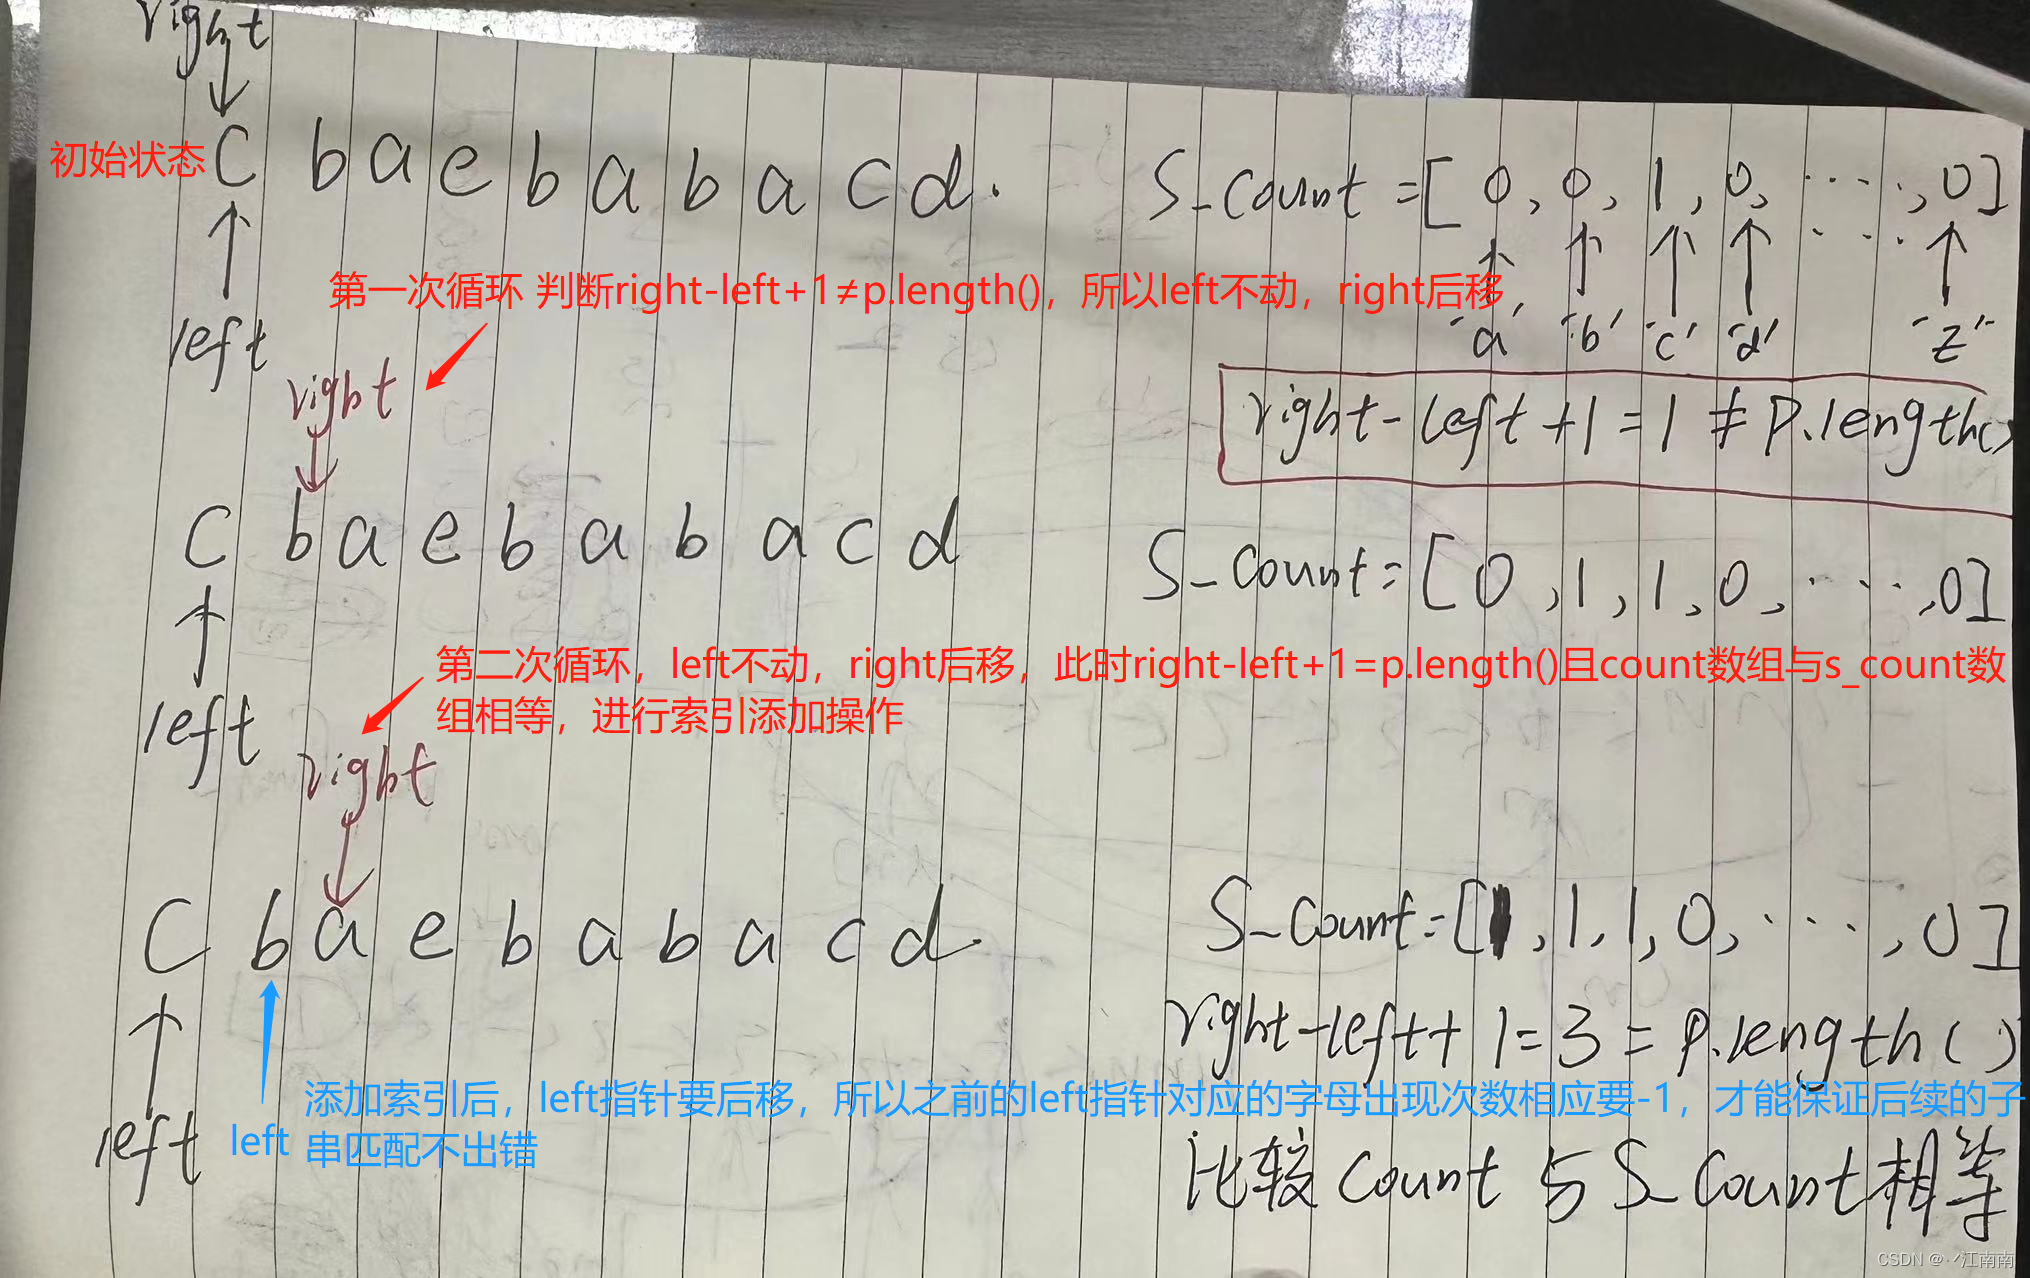 right
初始状态
c b a e b a b a c d.
S_count=[0,0,1,0,.....,0]
left
第一次循环 判断right-left+1≠p.length()，所以left不动，right后移
'a' 'b' 'c' 'd' 'z'
right
right-left+1=1≠p.length()
c b a e b a b a c d
S_count=[0,1,1,0,....,0]
left
第二次循环，left不动，right后移，此时right-left+1=p.length()且count数组与s_count数
组相等，进行索引添加操作
right
c b a e b a b a c d.
S_count=[1,1,1,0,....,0]
right-left+1=3=p.length()
left
left
添加索引后，left指针要后移，所以之前的left指针对应的字母出现次数相应要-1，才能保证后续的子
串匹配不出错
比较count与S_count相等
CSDN @·ᐟ江南南